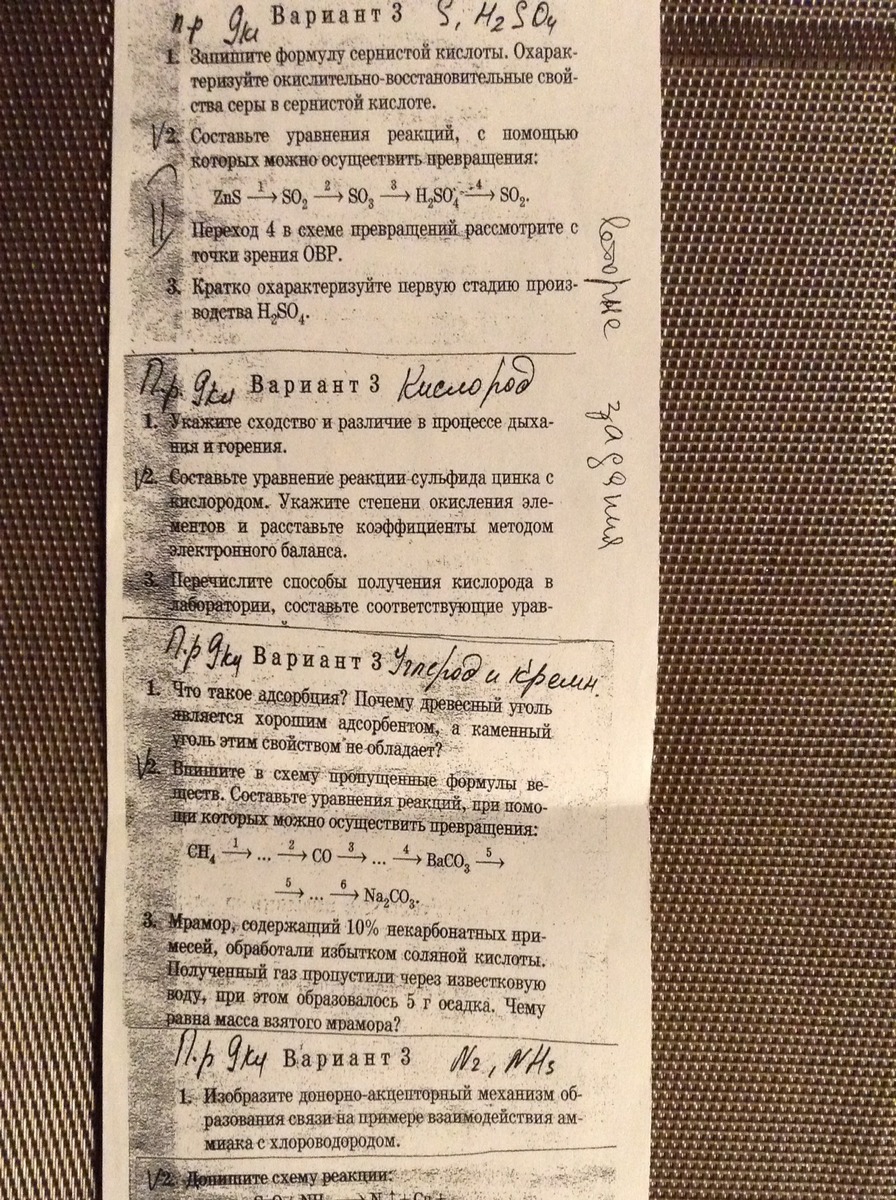 п.р 9кл Вариант 3 S, H₂SO₄
1. Запишите формулу сернистой кислоты. Охарак-
теризуйте окислительно-восстановительные свой-
ства серы в сернистой кислоте.
√2. Составьте уравнения реакций, с помощью
которых можно осуществить превращения:
ZnS —1→ SO₂ —2→ SO₃ —3→ H₂SO₄ —4→ SO₂.
Переход 4 в схеме превращений рассмотрите с
точки зрения ОВР.
3. Кратко охарактеризуйте первую стадию произ-
водства H₂SO₄.
задания
П.р 9кл Вариант 3 Кислород
1. Укажите сходство и различие в процессе дыха-
ния и горения.
√2. Составьте уравнение реакции сульфида цинка с
кислородом. Укажите степени окисления эле-
ментов и расставьте коэффициенты методом
электронного баланса.
3. Перечислите способы получения кислорода в
лаборатории, составьте соответствующие урав-
П.р 9кл Вариант 3 Углерод и кремн.
1. Что такое адсорбция? Почему древесный уголь
является хорошим адсорбентом, а каменный
уголь этим свойством не обладает?
√2. Впишите в схему пропущенные формулы ве-
ществ. Составьте уравнения реакций, при помо-
щи которых можно осуществить превращения:
CH₄ —1→ ... —2→ CO —3→ ... —4→ BaCO₃ —5→
—5→ ... —6→ Na₂CO₃.
3. Мрамор, содержащий 10% некарбонатных при-
месей, обработали избытком соляной кислоты.
Полученный газ пропустили через известковую
воду, при этом образовалось 5 г осадка. Чему
равна масса взятого мрамора?
П.р 9кл Вариант 3 N₂, NH₃
1. Изобразите донорно-акцепторный механизм об-
разования связи на примере взаимодействия ам-
миака с хлороводородом.
√2. Допишите схему реакции: